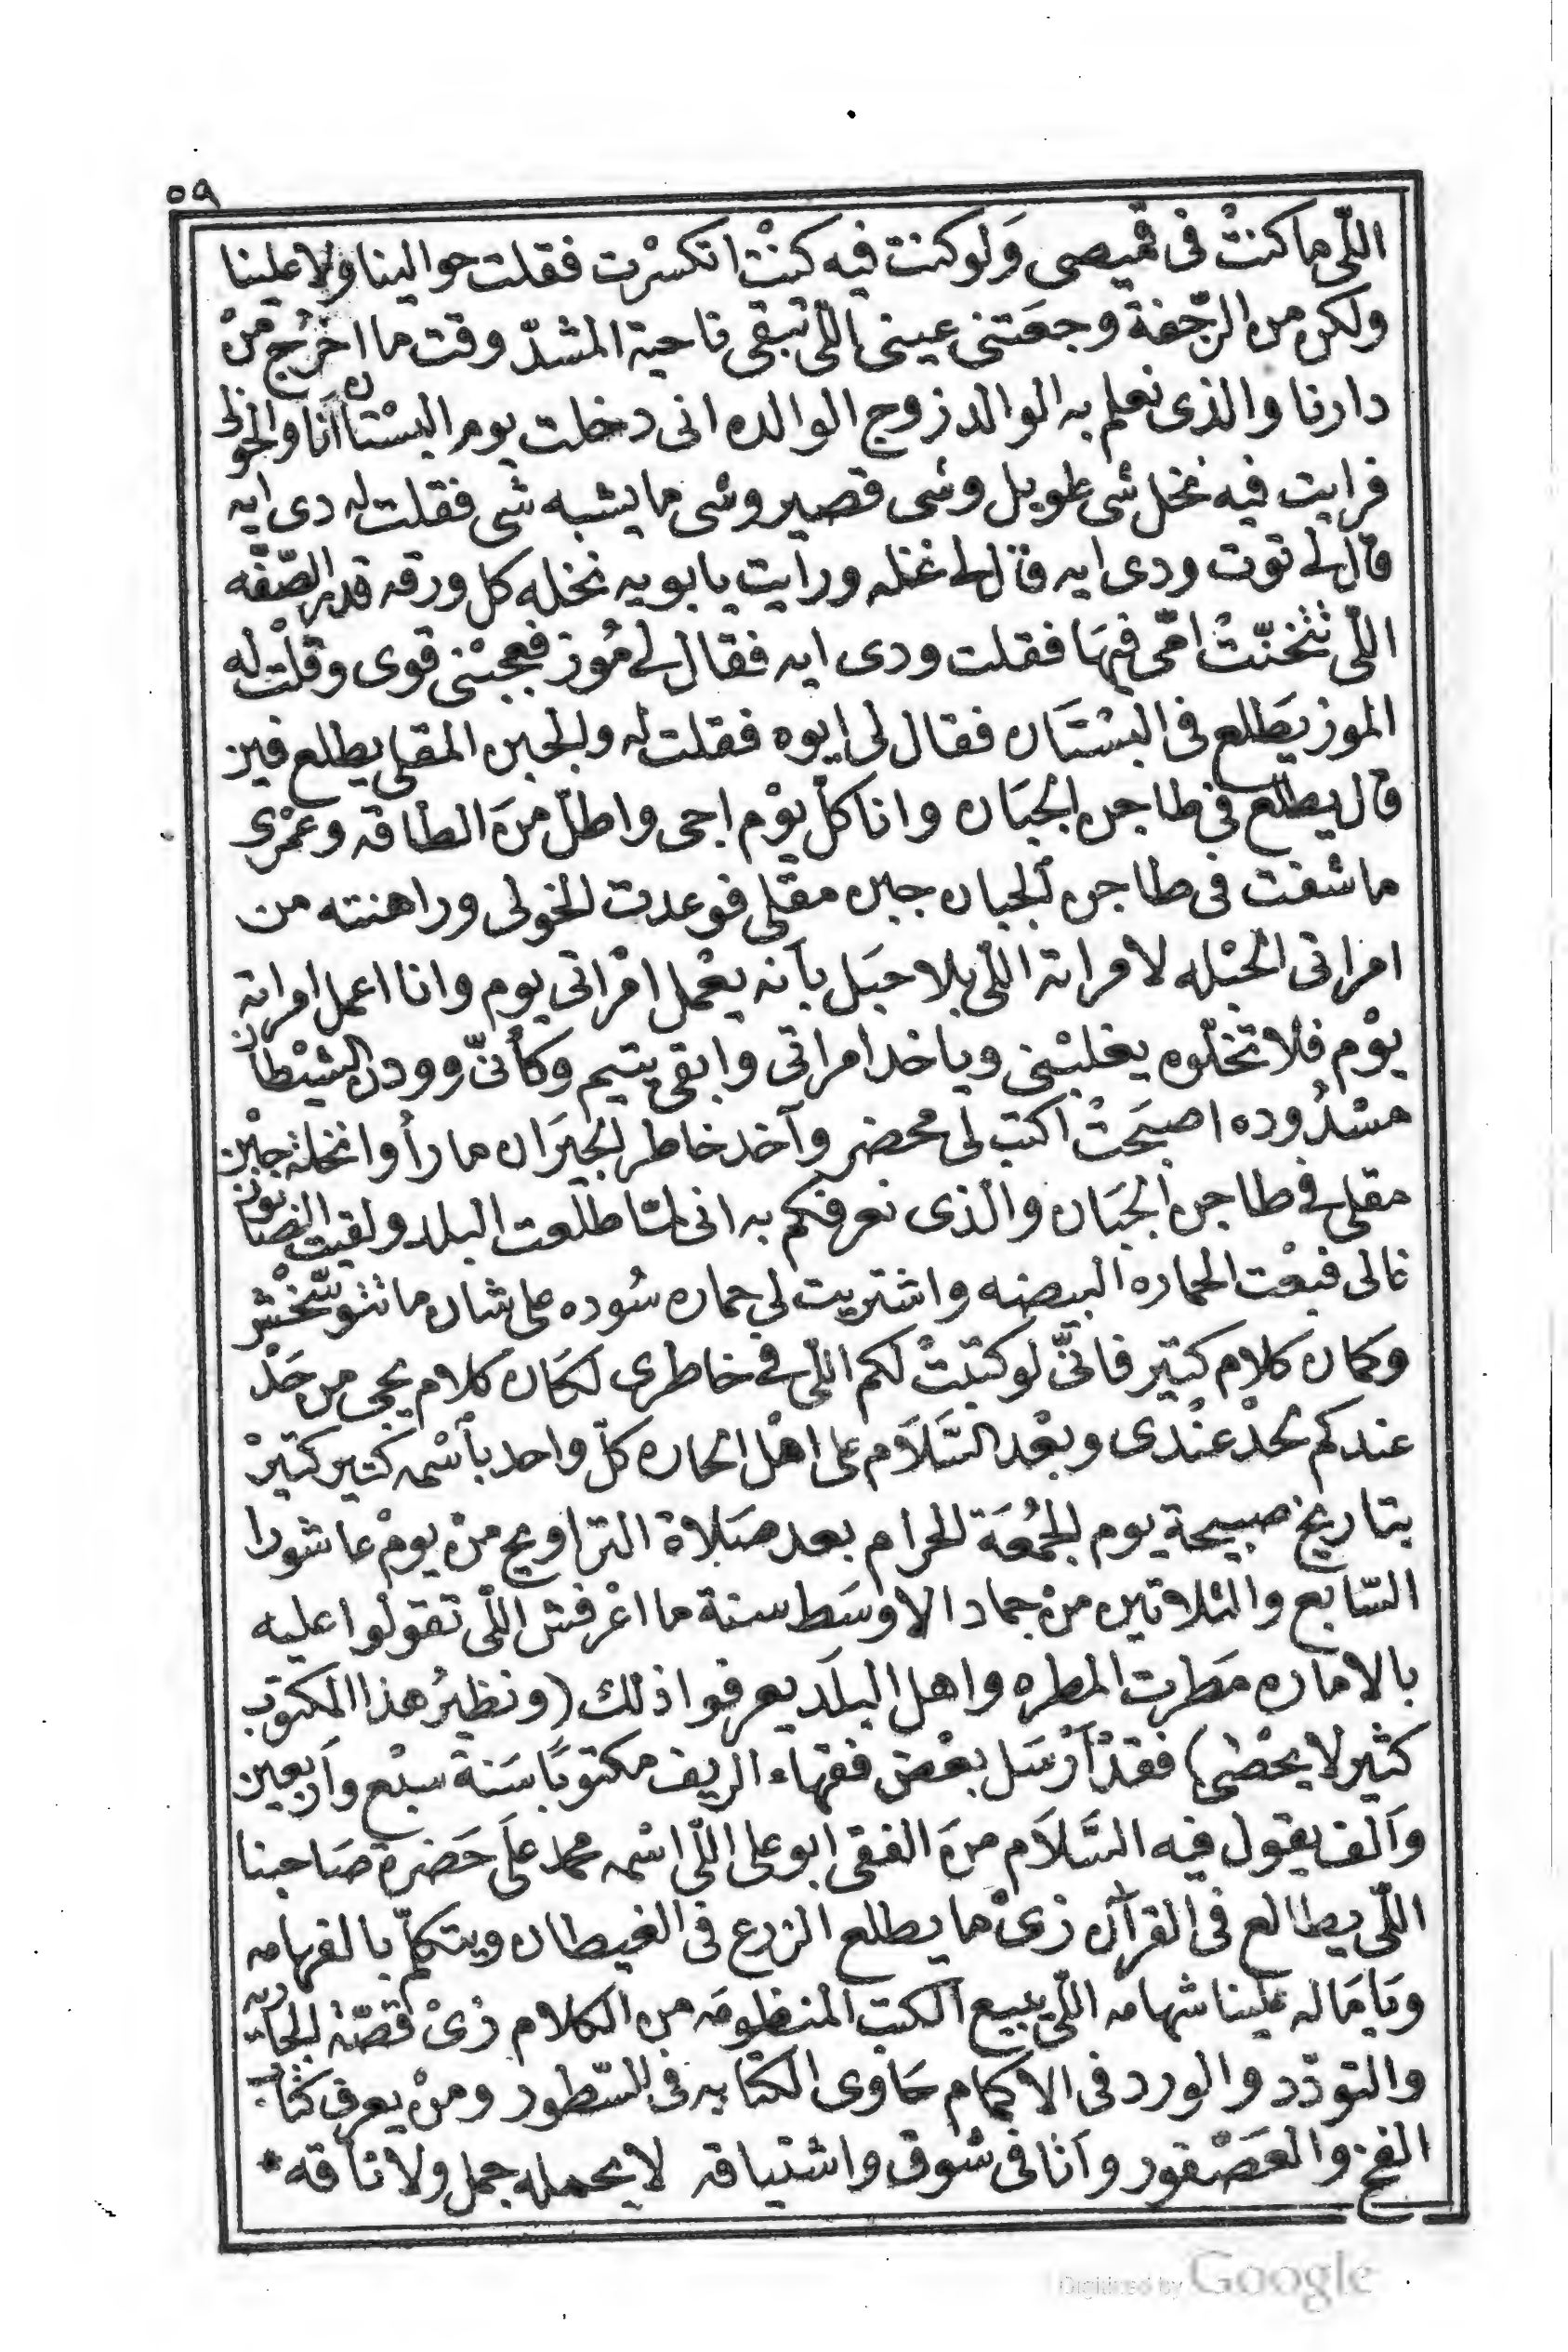 ٥٩
اللّى ما كنتْ فى قميصى وَلو كنت فيه كنتْ اتكسرْت فقلت حوالينا ولا علينا
ولكن من الرّجفة وجعَتنى عينى اللّى تبقى ناحية المشدّ وقت ما اخرُج مِنْ
دارنا والذى نعلم به الوالد زوج الوالده انى دخلت يوم البسْتان أنا والخولى
فرايت فيه نخل شى طويل وشى قصير وشى ما يشبه شى فقلت له دى ايه
قال لى توت ودى ايه قال لى نخله ورايت يا بويه نخله كل ورقه قدر الصّفّه
اللّى تتخنّتْ امّى فيهَا فقلت ودى ايه فقال لى مُوز فعجبْنى قوى وقلْت له
الموز يَطلع فى البسْتَان فقال لى ايوه فقلت له والجبن المقلى يطلع فين
قال يطلع فى طاجن الجبَان وانا كلّ يوْم اجى واطلّ منَ الطاقه وعمْرى
ما شفت فى طاجن الجبان جبن مقلى فوعدت الخولى وراهنته من
امراتى الحبْله لامراته اللّى بلا حبَل بأنه يعْمل امْراتى يوم وانا اعمل امراته
يوْم فلا تخلّوه يغلبْنى وياخد امراتى وابقى يتيم وكأنّى وودن الشيْطان
مسْدُوده اصبَحتْ اكتب لى محضر وآخد خاطر الجيرَان ما رأوا نخلة جبْن
مقلى فى طاجن الجبَان والّذى نعرفكم به انى لمّا طلعت البلد ولقيت الصّابون
غالى فبعْت الحماره البيضه واشتريت لى حماره سُوده على شان ما تتوسّخْش
وكمان كلام كتير فانّى لو كتبْتْ لكم اللّى فى خاطرى لكَان كلام يجى من حَدّ
عندكم لحدْ عنْدى وبعْد السَّلاَم على اهْل الحاره كلّ واحد بأسْمه كتير كتيرْ
بتاريخ صبيحة يوم الجمُعَة الحرام بعد صَلاة التراويح منْ يومْ عاشورا
السّابع والثلاتين منْ جماد الاوسَط سنة ما اعْرفش اللّى تقولوا عليه
بالاماره مَطرت المطره واهل البلَد يعرفوا ذلك (ونظيرُ هذا المكتوب
كثير لا يحْصى) فقدْ أرْسَل بعْض فقهاء الريف مكتوبًا سَنة سبْع وأربعين
وألف يقول فيه السَّلاَم منَ الفقى ابو على اللّى اسْمه محمد علَى حَضرة صَاحبنا
اللّى يطالع فى القرآن زىْ ما يطلع الزرع فى الغيطان ويتكلّم بالفهامه
ويَامَا له علينا شهامه اللّى يبيع الكتب المنظومَه من الكلام زىْ قصّة الجاريه
والتودّد والورد فى الاكمام حَاوى الكتابه فى السّطور ومنْ يعرف كتاب
الفخ والعَصْفور وأنا فى شوق واشتياقه لا يحمله جمل ولا ناقه *
Digitized by Google